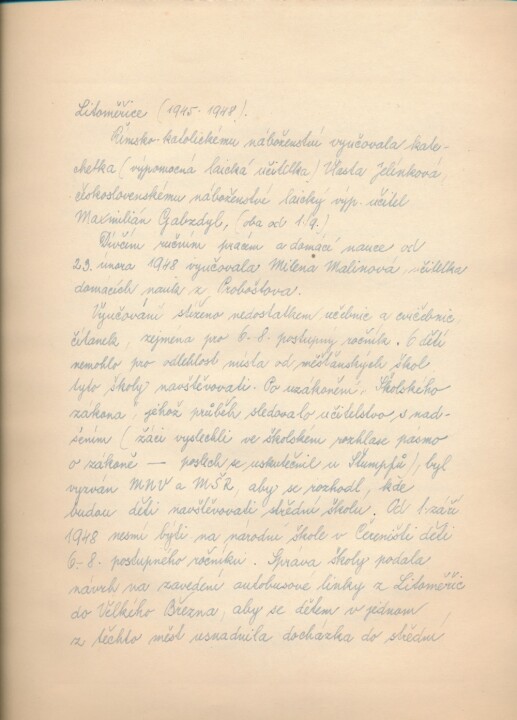 Litoměřice (1945-1948).
Římsko-katolickému náboženství vyučovala kate-
chetka (výpomocná laická učitelka) Vlasta Jelínková,
československému náboženství laický výp. učitel
Maxmilián Gabzdyl, (oba od 1./9.)
Dívčím ručním pracím a domácí nauce od
23. února 1948 vyučovala Milena Malinová, učitelka
domácích nauk z Proboštova.
Vyučování stíženo nedostatkem učebnic a cvičebnic,
čítanek, zejména pro 6.-8. postupný ročník. 6 dětí
nemohlo pro odlehlost místa od měšťanských škol
tyto školy navštěvovati. Po uzákonění "Školského
zákona", jehož průběh sledovalo učitelstvo s nad-
šením (žáci vyslechli ve školském rozhlase pásmo
o zákoně — poslech se uskutečnil u Štumpfů), byl
vyzván MNV a MŠR, aby se rozhodl, kde
budou děti navštěvovati střední školu. Od 1. září
1948 nesmí býti na národní škole v Čeřeništi děti
6.-8. postupného ročníku. Správa školy podala
návrh na zavedení autobusové linky z Litoměřic
do Velkého Března, aby se dětem v jednom
z těchto měst usnadnila docházka do střední